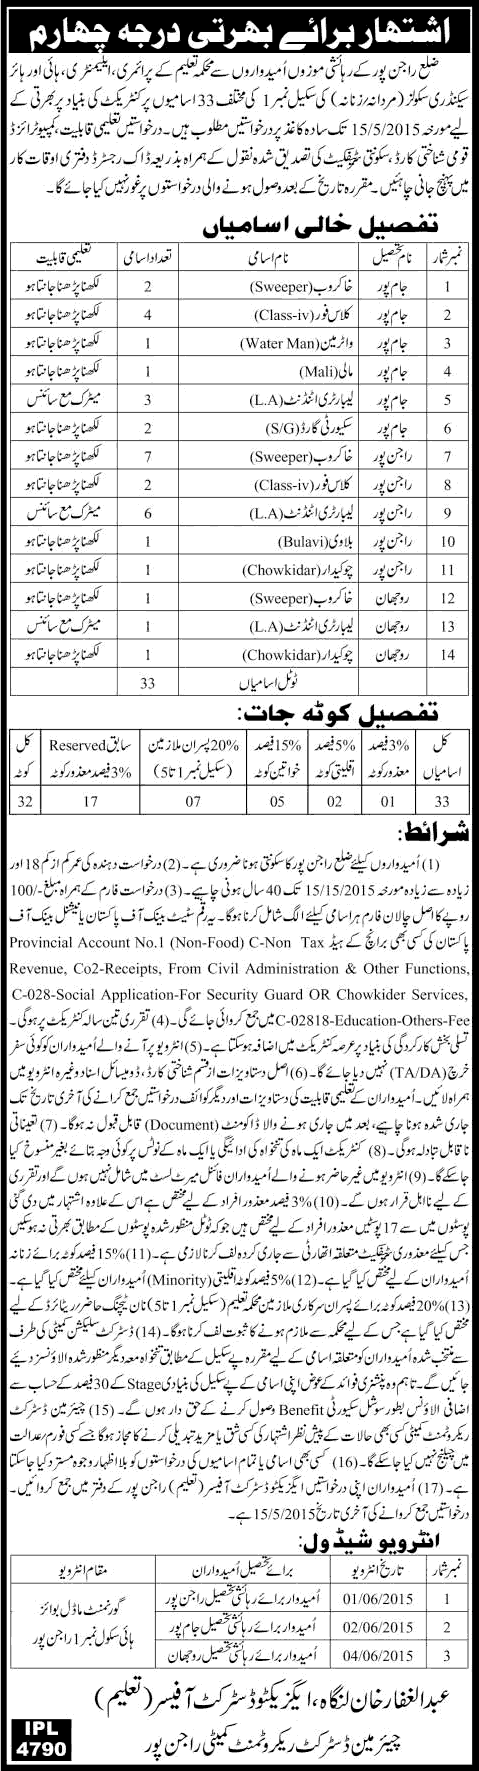 اشتہار برائے بھرتی درجہ چہارم
ضلع راجن پور کے رہائشی موزوں اُمیدواروں سے محکمہ تعلیم کے پرائمری، ایلیمنٹری، ہائی اور ہائر
سیکنڈری سکولز (مردانہ/زنانہ) کی سکیل نمبر 1 کی مختلف 33 اسامیوں پر کنٹریکٹ کی بنیاد پر بھرتی کے
لیے مورخہ 15/5/2015 تک سادہ کاغذ پر درخواستیں مطلوب ہیں۔ درخواستیں تعلیمی قابلیت، کمپیوٹرائزڈ
قومی شناختی کارڈ، سکونتی سرٹیفکیٹ کی تصدیق شدہ نقول کے ہمراہ بذریعہ ڈاک رجسٹرڈ دفتری اوقات کار
میں پہنچ جانی چاہئیں۔ مقررہ تاریخ کے بعد وصول ہونے والی درخواستوں پر غور نہیں کیا جائے گا۔
تفصیل خالی اسامیاں
نمبر شمار نام تحصیل نام اسامی تعداد اسامی تعلیمی قابلیت
1 جام پور خاکروب (Sweeper) 2 لکھنا پڑھنا جانتا ہو
2 جام پور کلاس فور (Class-iv) 4 لکھنا پڑھنا جانتا ہو
3 جام پور واٹر مین (Water Man) 1 لکھنا پڑھنا جانتا ہو
4 جام پور مالی (Mali) 1 لکھنا پڑھنا جانتا ہو
5 جام پور لیبارٹری اٹنڈنٹ (L.A) 3 میٹرک مع سائنس
6 جام پور سکیورٹی گارڈ (S/G) 2 لکھنا پڑھنا جانتا ہو
7 راجن پور خاکروب (Sweeper) 7 لکھنا پڑھنا جانتا ہو
8 راجن پور کلاس فور (Class-iv) 2 لکھنا پڑھنا جانتا ہو
9 راجن پور لیبارٹری اٹنڈنٹ (L.A) 6 میٹرک مع سائنس
10 راجن پور بلاوی (Bulavi) 1 لکھنا پڑھنا جانتا ہو
11 راجن پور چوکیدار (Chowkidar) 1 لکھنا پڑھنا جانتا ہو
12 روجھان خاکروب (Sweeper) 1 لکھنا پڑھنا جانتا ہو
13 روجھان لیبارٹری اٹنڈنٹ (L.A) 1 میٹرک مع سائنس
14 روجھان چوکیدار (Chowkidar) 1 لکھنا پڑھنا جانتا ہو
ٹوٹل اسامیاں 33
تفصیل کوٹہ جات:
کل اسامیاں 3% فیصد معذور کوٹہ 5% فیصد اقلیتی کوٹہ 15% فیصد خواتین کوٹہ 20% پسران ملازمین (سکیل نمبر 1 تا 5) سابق Reserved 3% فیصد معذور کوٹہ کل کوٹہ
33 01 02 05 07 17 32
شرائط:
(1) اُمیدواروں کیلئے ضلع راجن پور کا سکونتی ہونا ضروری ہے۔ (2) درخواست دہندہ کی عمر کم از کم 18 اور
زیادہ سے زیادہ مورخہ 15/15/2015 تک 40 سال ہونی چاہیے۔ (3) درخواست فارم کے ہمراہ مبلغ -/100
روپے کا اصل چالان فارم ہر اسامی کیلئے الگ شامل کرنا ہوگا۔ یہ رقم سٹیٹ بینک آف پاکستان یا نیشنل بینک آف
پاکستان کی کسی بھی برانچ کے ہیڈ Provincial Account No.1 (Non-Food) C-Non Tax
Revenue, Co2-Receipts, From Civil Administration & Other Functions,
C-028-Social Application-For Security Guard OR Chowkider Services,
C-02818-Education-Others-Fee میں جمع کروائی جائے گی۔ (4) تقرری تین سالہ کنٹریکٹ پر ہوگی۔
تسلی بخش کارکردگی کی بنیاد پر عرصہ کنٹریکٹ میں اضافہ ہو سکتا ہے۔ (5) انٹرویو پر آنے والے اُمیدواران کو کوئی سفر
خرچ (TA/DA) نہیں دیا جائے گا۔ (6) اصل دستاویزات از قسم شناختی کارڈ، ڈومیسائل اسناد وغیرہ انٹرویو میں
ہمراہ لائیں۔ اُمیدواران کے تعلیمی قابلیت کی دستاویزات اور دیگر کوائف درخواستیں جمع کرانے کی آخری تاریخ تک
جاری شدہ ہونا چاہیے، بعد میں جاری ہونے والا ڈاکومنٹ (Document) قابل قبول نہ ہوگا۔ (7) تعیناتی
ناقابل تبادلہ ہوگی۔ (8) کنٹریکٹ ایک ماہ کی تنخواہ کی ادائیگی یا ایک ماہ کے نوٹس پر کوئی وجہ بتائے بغیر منسوخ کیا
جا سکے گا۔ (9) انٹرویو میں غیر حاضر ہونے والے اُمیدواران فائنل میرٹ لسٹ میں شامل نہیں ہوں گے اور تقرری
کے لیے نااہل قرار ہوں گے۔ (10) 3% فیصد معذور افراد کے لیے مختص ہے اس کے علاوہ اشتہار میں دی گئی
پوسٹوں میں سے 17 پوسٹیں معذور افراد کے لیے مختص ہیں جو کہ ٹوٹل منظور شدہ پوسٹوں کے مطابق بھرتی نہ ہو سکیں
جس کیلئے معذوری سرٹیفکیٹ متعلقہ اتھارٹی سے جاری کردہ لف کرنا لازمی ہے۔ (11) 15% فیصد کوٹہ برائے زنانہ
اُمیدواران کے لیے مختص کیا گیا ہے۔ (12) 5% فیصد کوٹہ اقلیتی (Minority) اُمیدواران کیلئے مختص کیا گیا ہے۔
(13) 20% فیصد کوٹہ برائے پسران سرکاری ملازمین محکمہ تعلیم (سکیل نمبر 1 تا 5) نان ٹیچنگ حاضر/ریٹائرڈ کے لیے
مختص کیا گیا ہے جس کے لیے محکمہ سے ملازم ہونے کا ثبوت لف کرنا ہوگا۔ (14) ڈسٹرکٹ سلیکشن کمیٹی کی طرف
سے منتخب شدہ اُمیدواران کو متعلقہ اسامی کے لیے مقررہ پے سکیل کے مطابق تنخواہ معہ دیگر منظور شدہ الاؤنسز دیئے
جائیں گے۔ تاہم وہ پنشنری فوائد کے عوض اپنی اسامی کے پے سکیل کی بنیادی Stage کے 30 فیصد کے حساب سے
اضافی الاؤنس بطور سوشل سکیورٹی Benefit وصول کرنے کے حق دار ہوں گے۔ (15) چیئرمین ڈسٹرکٹ
ریکروٹمنٹ کمیٹی کسی بھی حالات کے پیش نظر اشتہار کی کسی شق یا مزید تبدیلی کرنے کا مجاز ہوگا جسے کسی فورم/عدالت
میں چیلنج نہیں کیا جا سکے گا۔ (16) کسی بھی اسامی یا تمام اسامیوں کی درخواستوں کو بلا اظہار وجوہ مسترد کیا جا سکتا
ہے۔ (17) اُمیدواران اپنی درخواستیں ایگزیکٹو ڈسٹرکٹ آفیسر (تعلیم) راجن پور کے دفتر میں جمع کروائیں۔
درخواستیں جمع کروانے کی آخری تاریخ 15/5/2015 ہے۔
انٹرویو شیڈول:
نمبر شمار تاریخ انٹرویو برائے تحصیل اُمیدواران مقام انٹرویو
1 01/06/2015 اُمیدوار برائے رہائشی تحصیل راجن پور گورنمنٹ ماڈل بوائز
2 02/06/2015 اُمیدوار برائے رہائشی تحصیل جام پور ہائی سکول نمبر 1 راجن پور
3 04/06/2015 اُمیدوار برائے رہائشی تحصیل روجھان
عبدالغفار خان لنگاہ، ایگزیکٹو ڈسٹرکٹ آفیسر (تعلیم)
چیئرمین ڈسٹرکٹ ریکروٹمنٹ کمیٹی راجن پور
IPL
4790